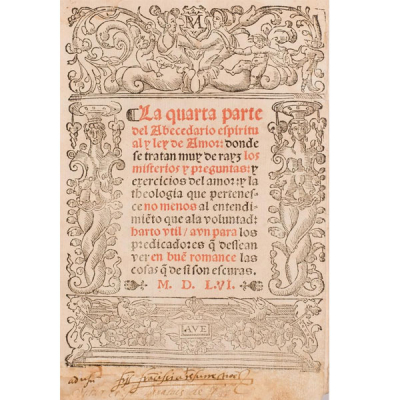 M
La quarta parte
del Abecedario espiritu
al y ley de Amor: donde
se tratan muy de rayz los
misterios y preguntas: y
exercicios del amor: y la
theologia que pertenes-
ce no menos al entendi-
miẽto que a la voluntad:
harto vtil / avn para los
predicadores q̃ dessean
ver en buẽ romance las
cosas q̃ de si son escuras.
M. D. L.VI.
AVE